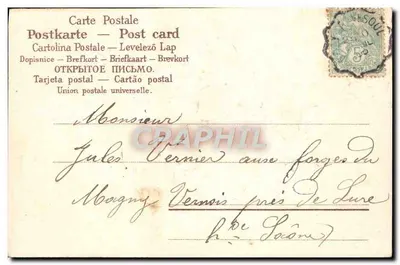 Carte Postale
Postkarte — Post card
Cartolina Postale — Levelező Lap
Dopisnice — Brefkort — Briefkaart — Brevkort
ОТКРЫТОЕ ПИСЬМО.
Tarjeta postal — Cartão postal
Union postale universelle.
5
CPAPHIL
Monsieur
Jules Vernier aux forges du
Magny Vernois près de Lure
hte Saône